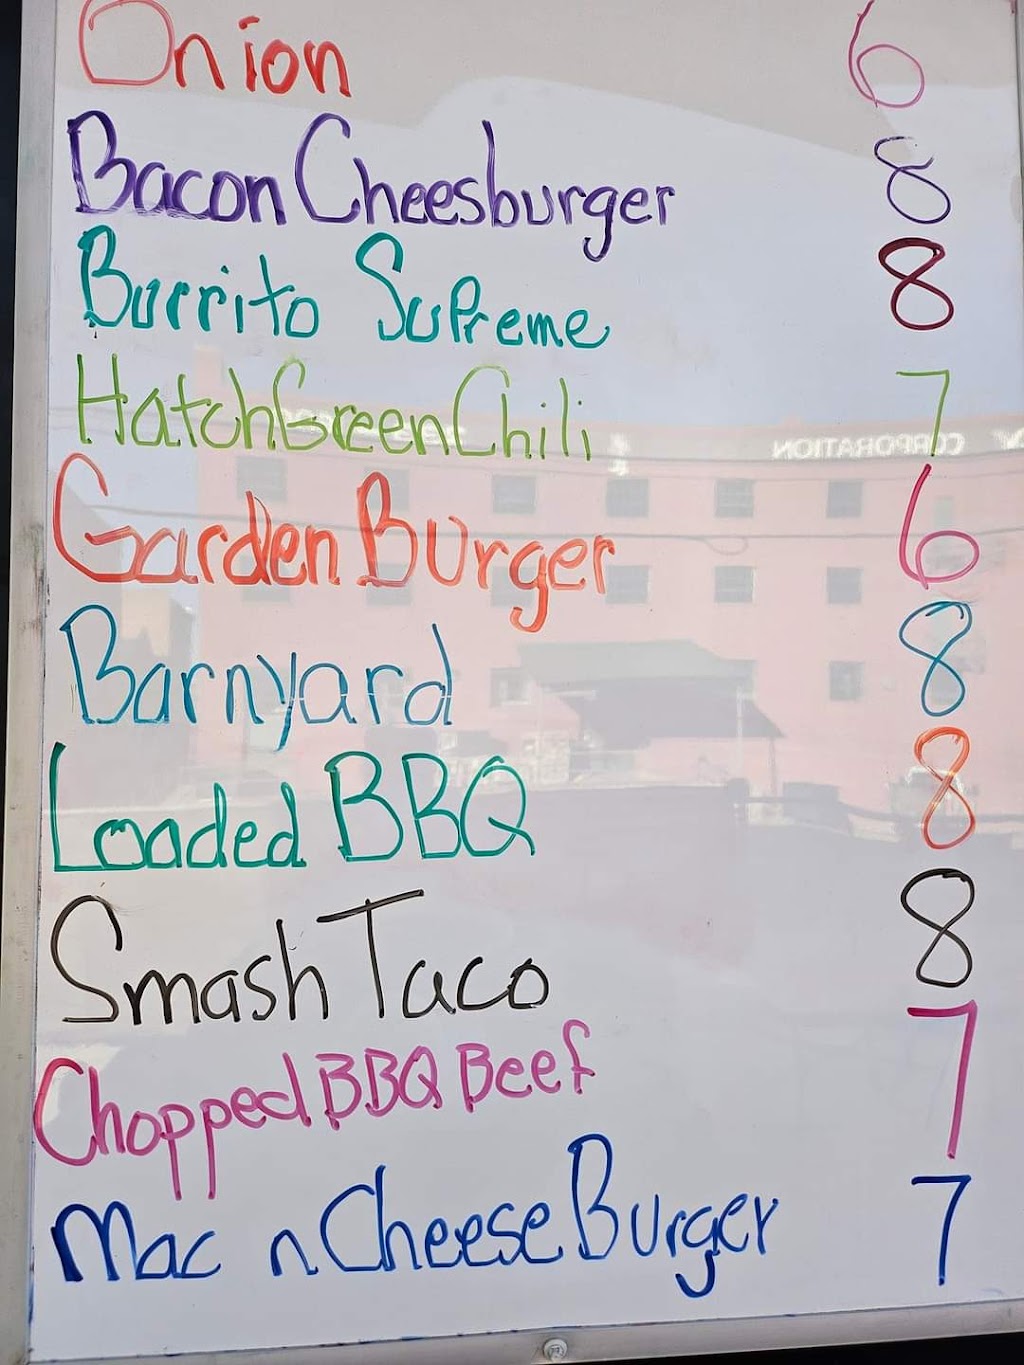 Onion 6
Bacon Cheesburger 8
Burrito Supreme 8
Hatch Green Chili 7
Garden Burger 6
Barnyard 8
Loaded BBQ 8
Smash Taco 8
Chopped BBQ Beef 7
Mac n Cheese Burger 7
CORPORATION